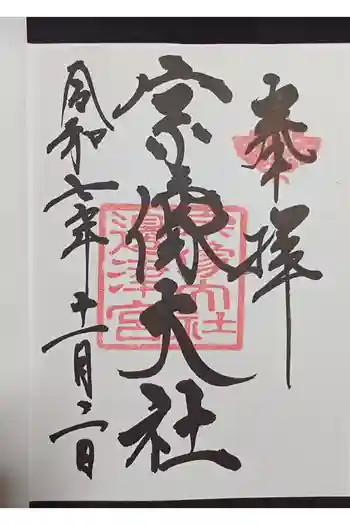 奉拝
宗像大社
宗像大社
邊津宮
令和七年十一月二日